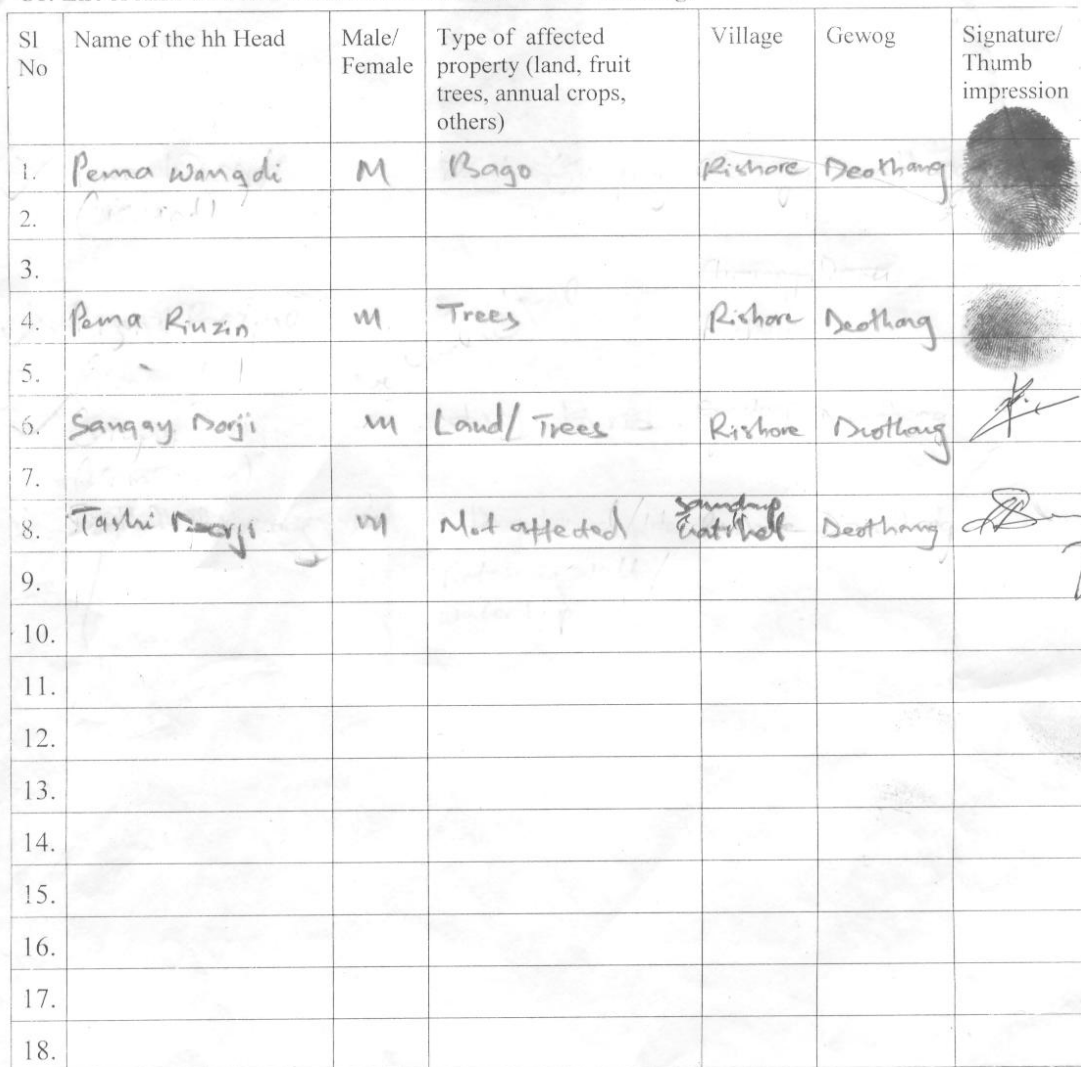 Sl No | Name of the hh Head | Male/ Female | Type of affected property (land, fruit trees, annual crops, others) | Village | Gewog | Signature/ Thumb impression
1. | Pema Wangdi | M | Bago | Rishore | Deothang
2.
3.
4. | Pema Rinzin | M | Trees | Rishore | Deothang
5.
6. | Sangay Dorji | M | Land/ Trees | Rishore | Deothang
7.
8. | Tashi Dorji | M | Not affected | Samdrup Gatshel | Deothang
9.
10.
11.
12.
13.
14.
15.
16.
17.
18.